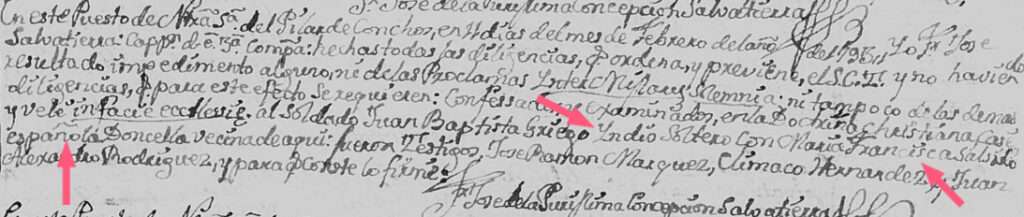 Fr. Jose de la Purissima Concepcion Salvatierra
En este Puesto de Ntra Sa. del Pilar de Conchos, en 11 dias del mes de Febrero del año de Yo Fr. Jose
Salvatierra: Cappn. de esta Compa: hechas todas las diligencias, q ordena, y previene, el S.C.T. y no haviendo
resultado impedimento alguno, ni de las Proclamas Inter Missarum Solemnia: ni tampoco de las demas
diligencias, q para este efecto se requieren: Confessados, y examinados, en la Doctrina Christiana, Case
y vele in facie ecclesie. al Soldado Juan Baptista Griego Yndio Soltero con Maria Francisca Salsido
española Doncella vecina de aqui: fueron Testigos, Jose Ramon Marquez, Climaco Hernandez, y Juan
Alexandro Rodriguez, y para q Conste lo firmé.
Fr. Jose de la Purissima Concepcion Salvatierra